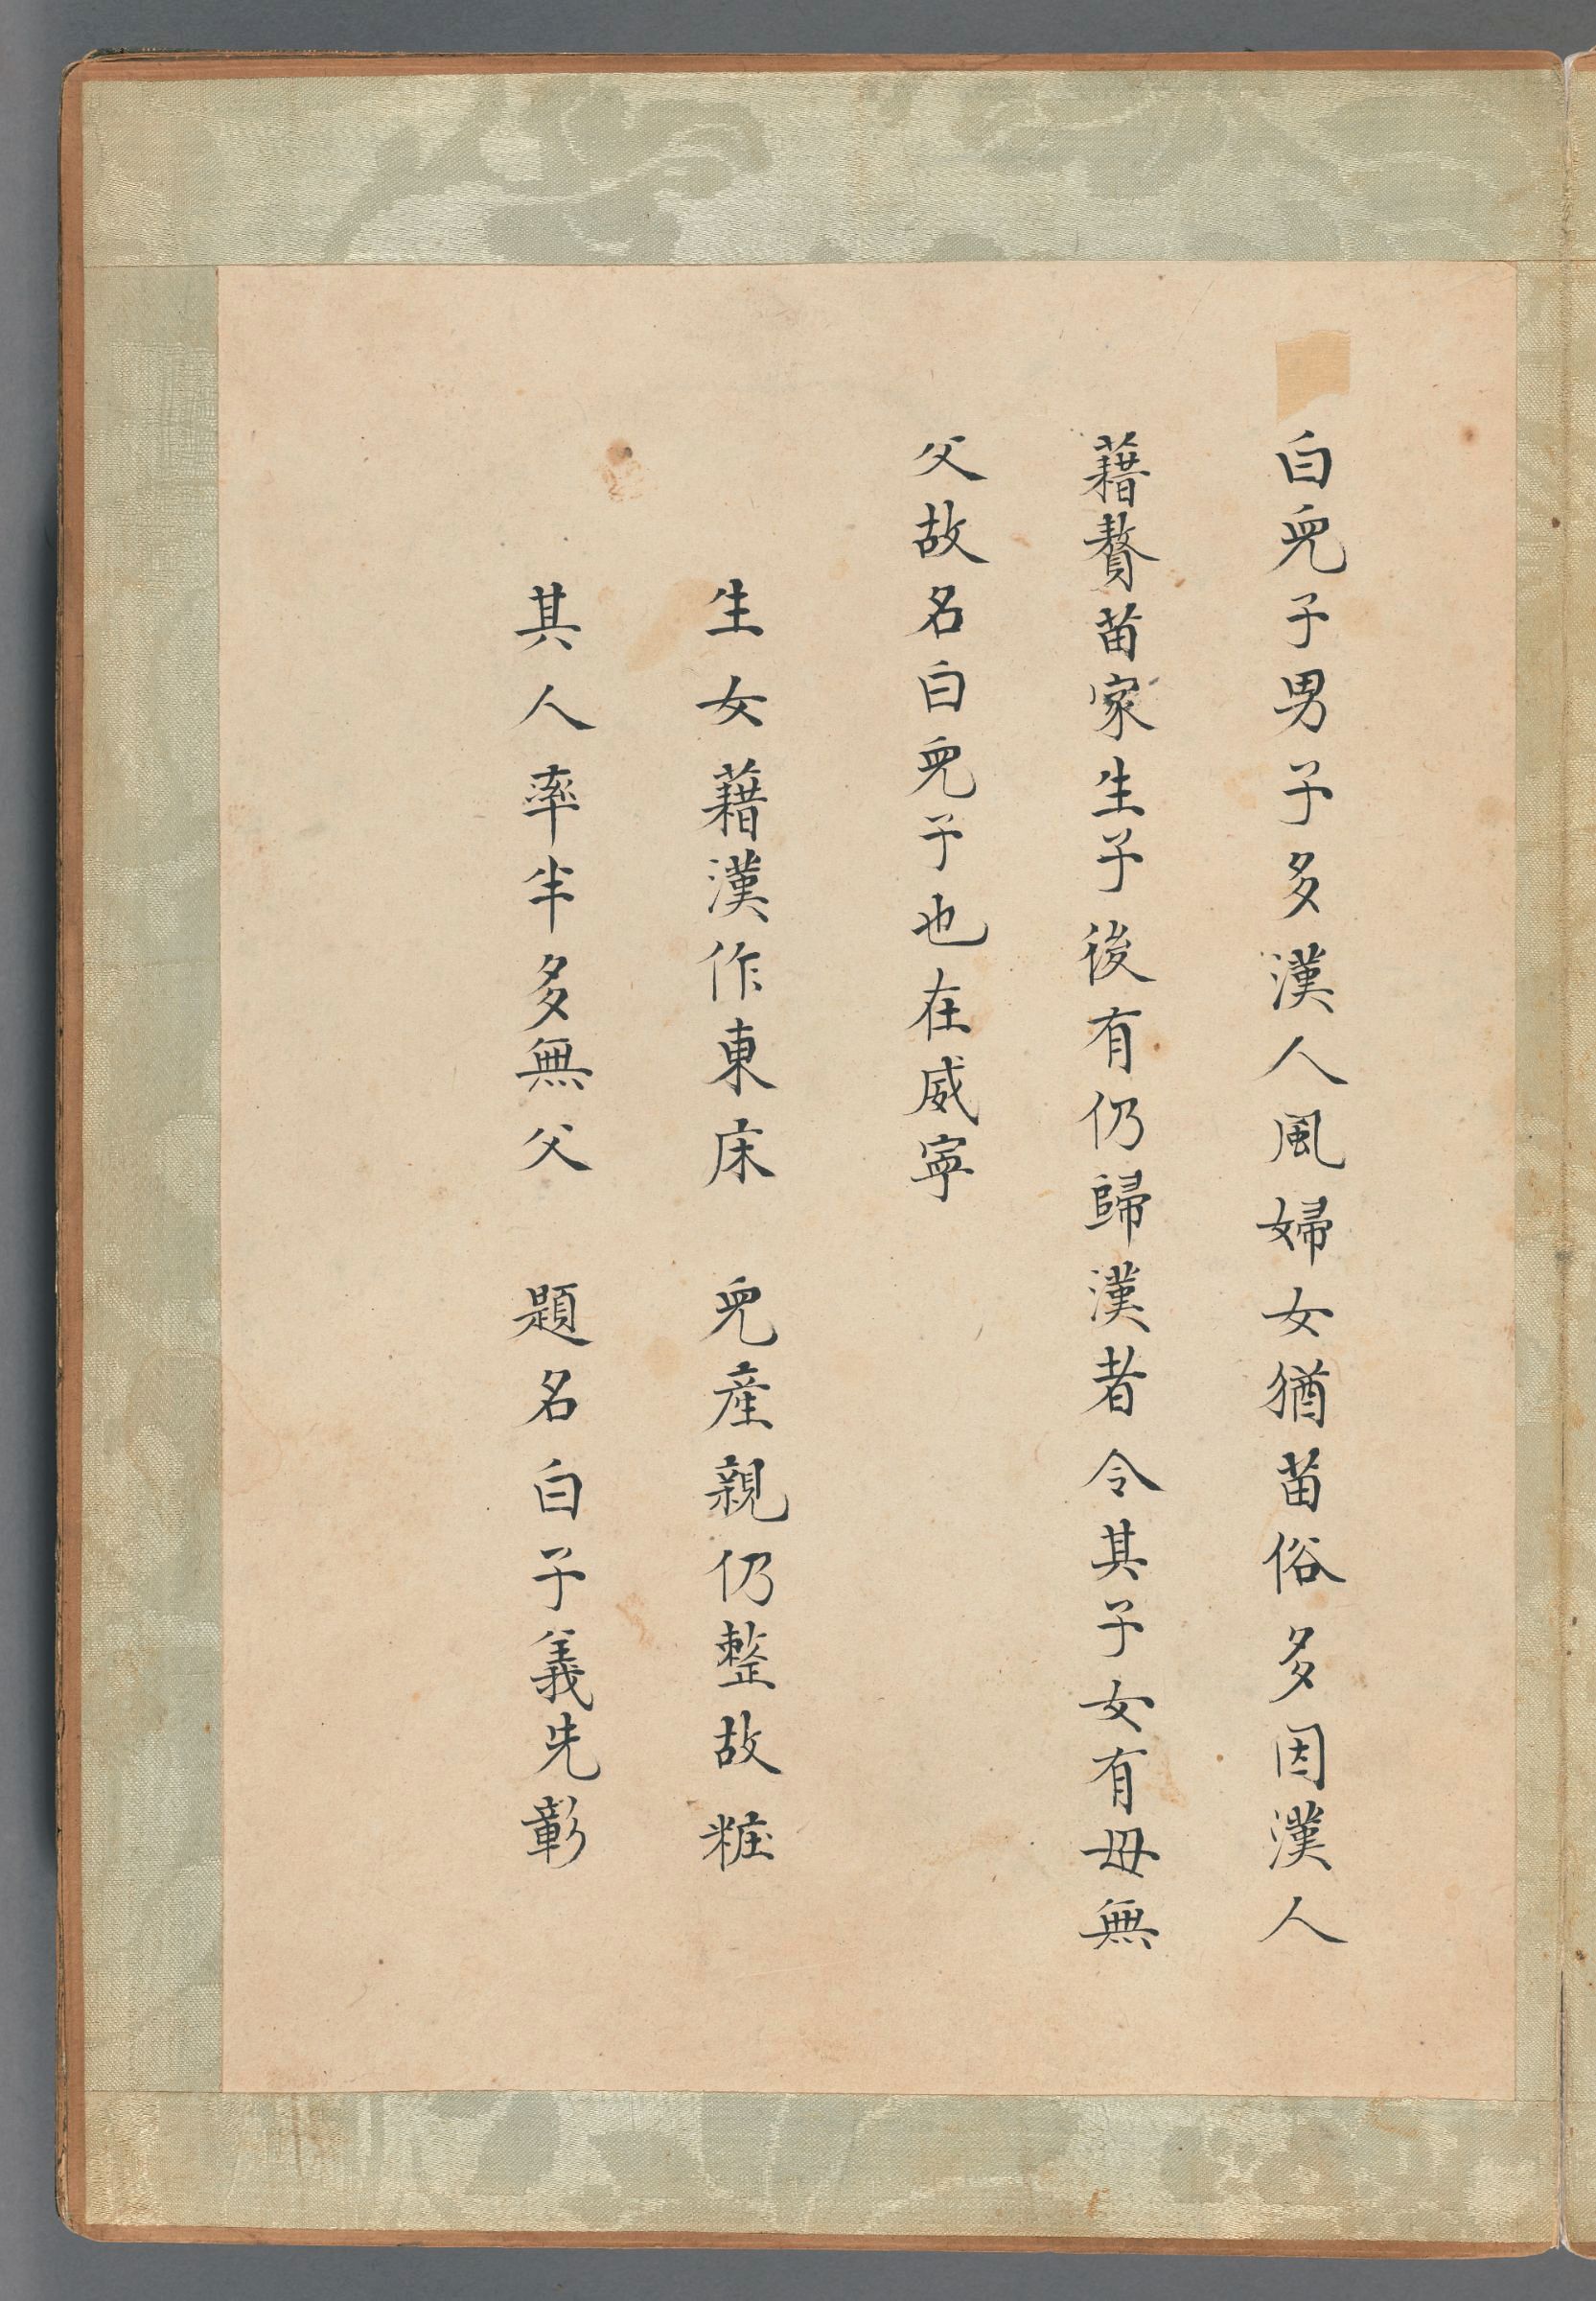 白兒子男子多漢人風婦女猶苗俗多因漢人
藉贅苗家生子後有仍歸漢者令其子女有母無
父故名白兒子也在威寧
生女藉漢作東床　兒產親仍整故粧
其人率半多無父　題名白子義先彰